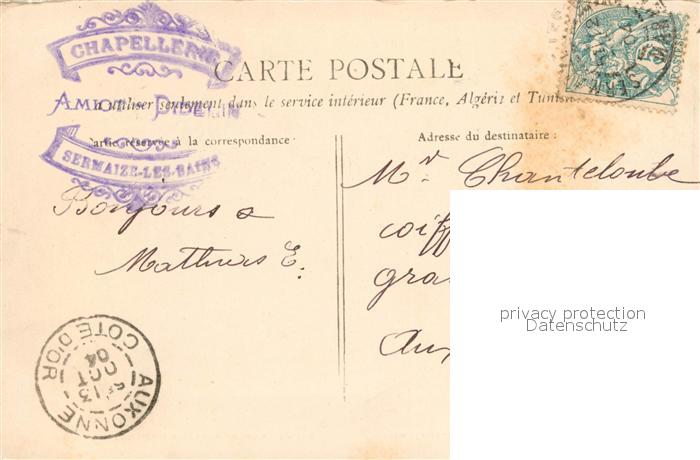 CHAPELLERIE
CARTE POSTALE
AMIOT DIDELIN
utiliser seulement dans le service intérieur (France, Algérie et Tunisie
Partie réservée à la correspondance
Adresse du destinataire :
SERMAIZE-LES-BAINS
Mr. Chanteloube
Bonjours a
Mathias E.
coiff
gra
Aux
privacy protection
Datenschutz
AUXONNE
COTE D'OR
13
OCT
04